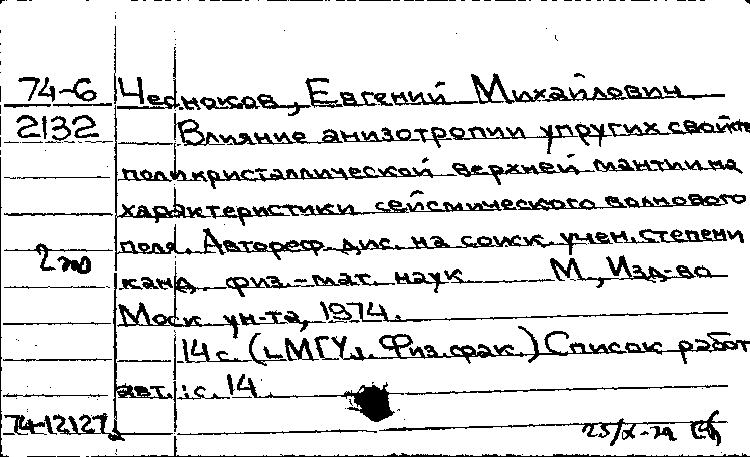 74-6 Чесноков, Евгений Михайлович.
2132 Влияние анизотропии упругих свойств
поликристаллической верхней мантии на
характеристики сейсмического волнового
поля. Автореф. дис. на соиск. учен. степени
2 экз
канд. физ.-мат. наук М., Изд-во
Моск. ун-та, 1974.
14 с. (МГУ. Физ. фак.) Список работ
авт.: с. 14.
74-12127